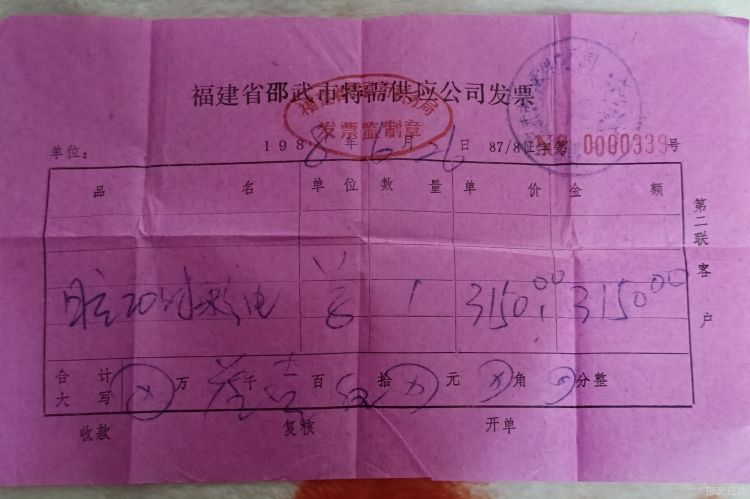 福建省邵武市特需供应公司发票
发票监制章
单位: 1988年6月26日 87/8征字第 № 0000339号
品名 单位 数量 单价 金额
20吋彩电 台 1 3150.00 3150.00
合计大写 ⊗万叁千壹百伍拾⊗元⊗角⊗分整
收款 复核 开单
第二联 客户